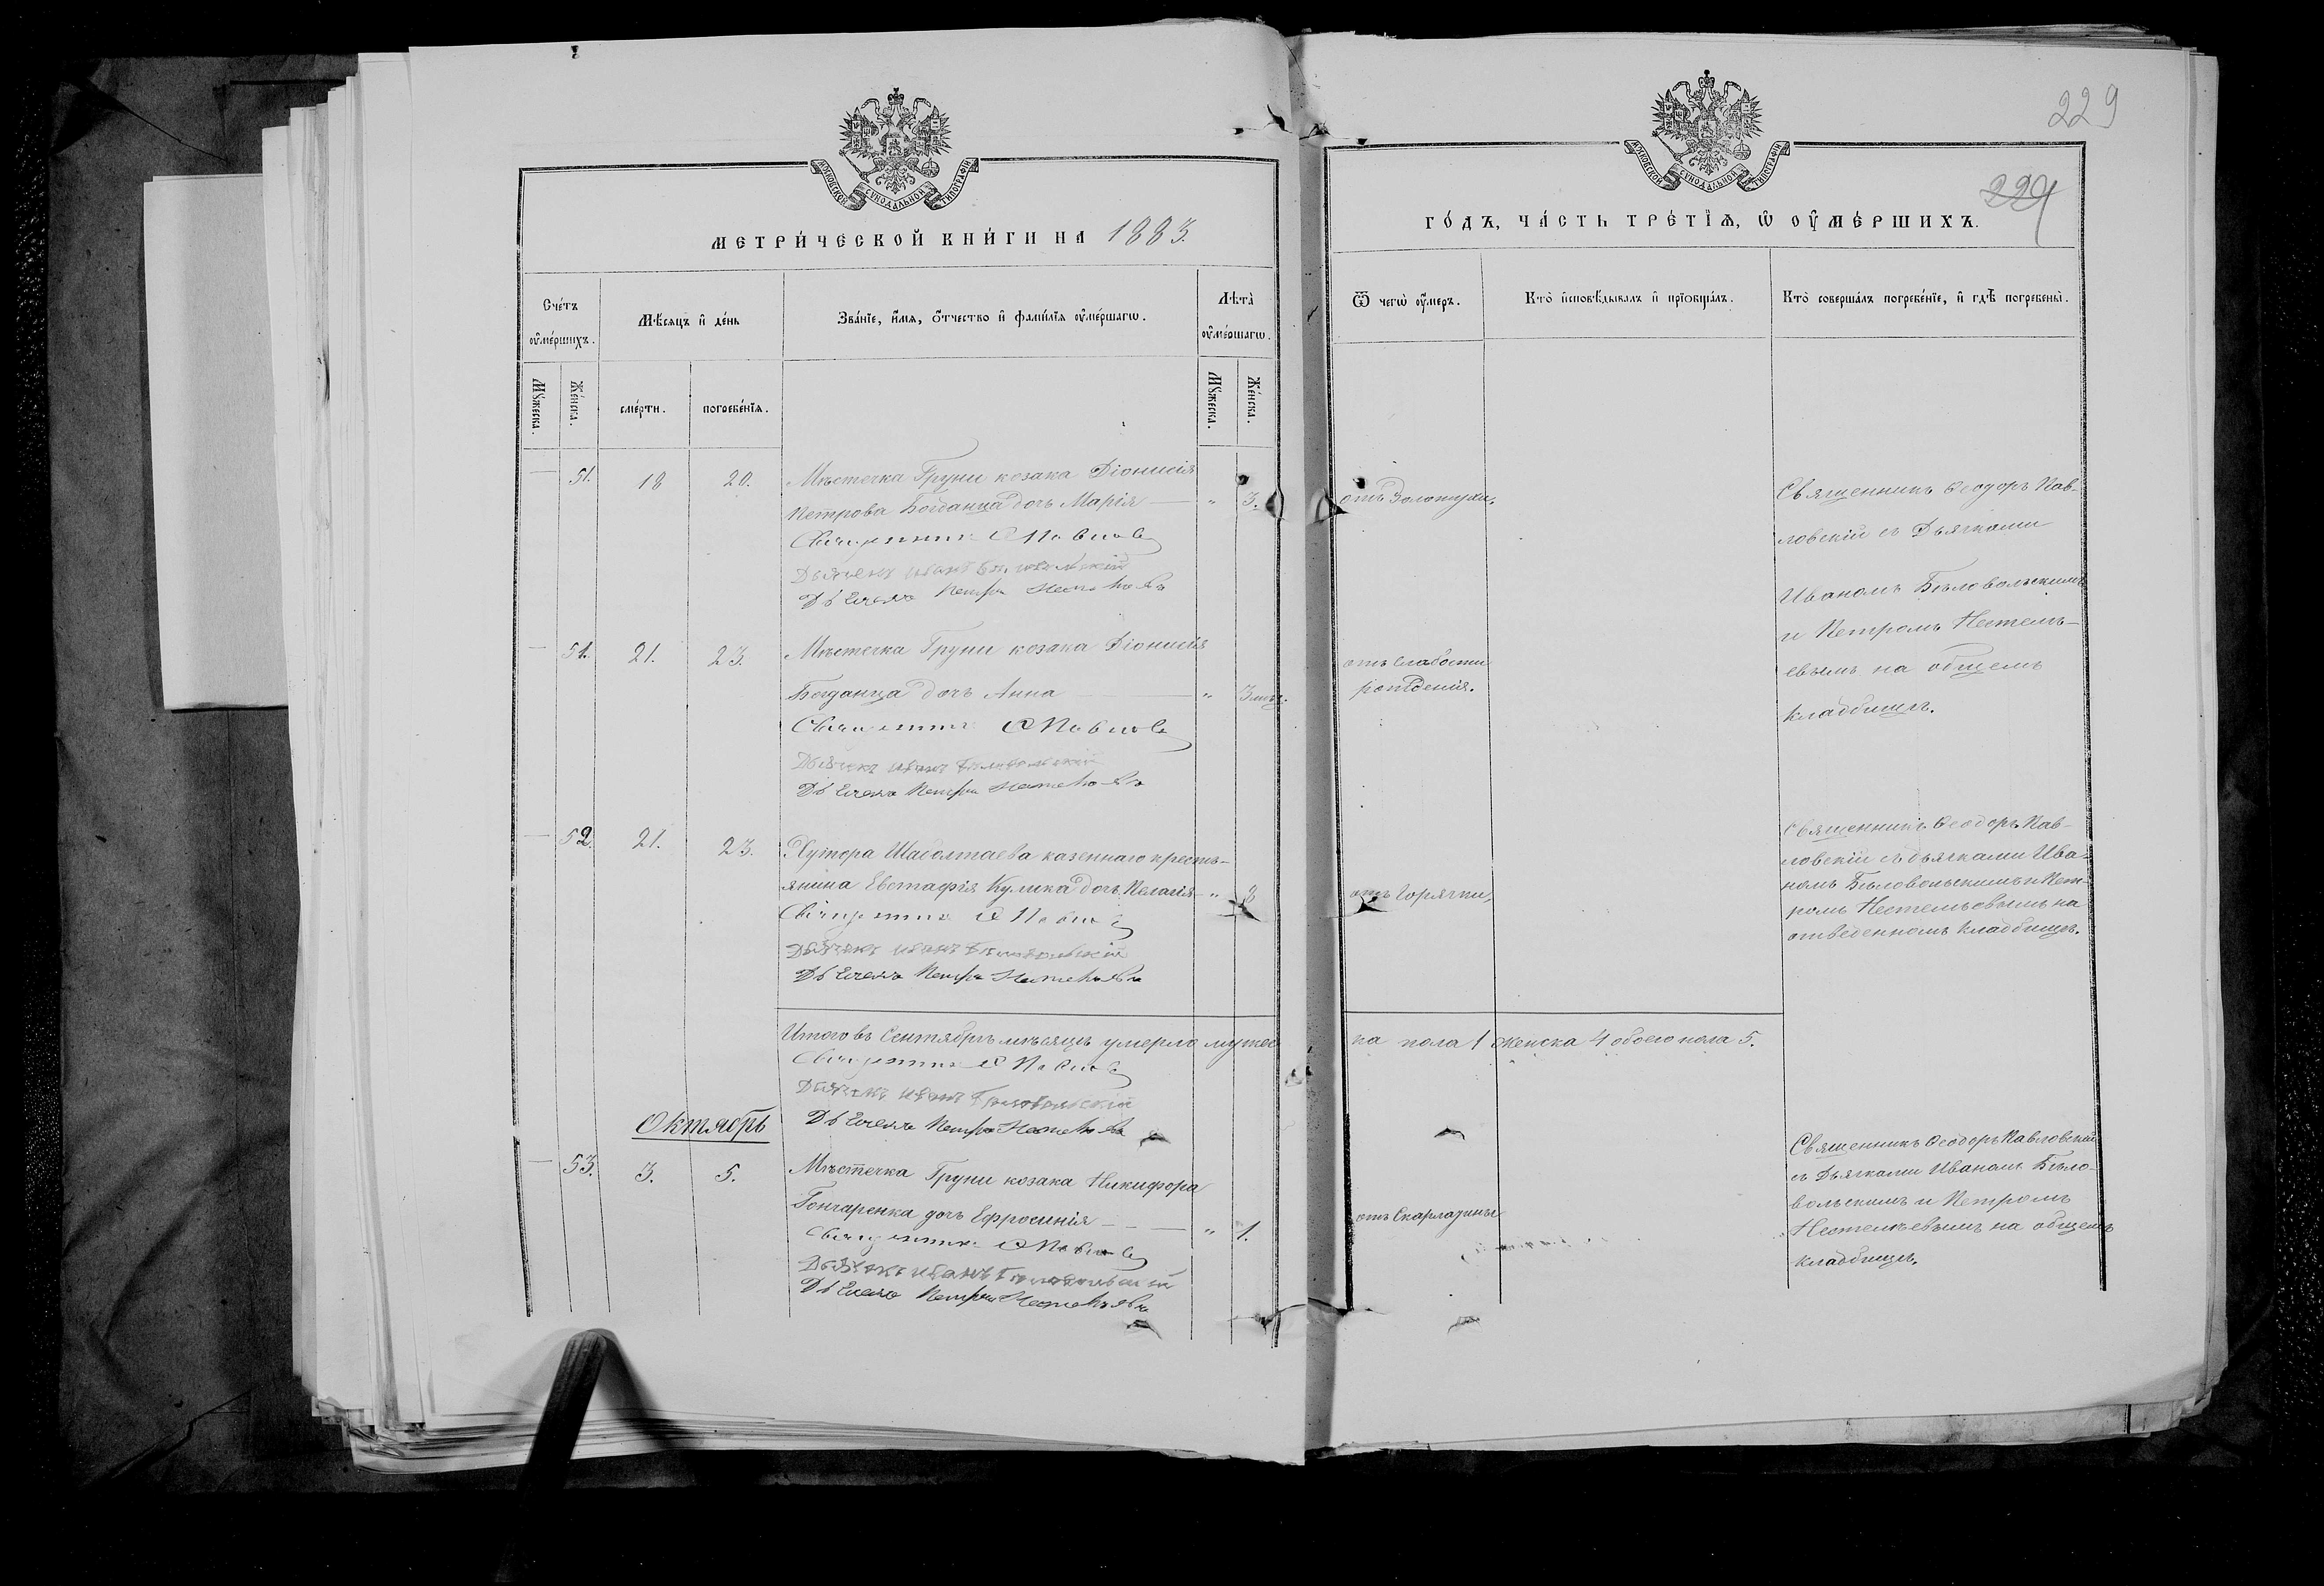 229
229
МОСКОВСКОЙ СѴНОДАЛЬНОЙ ТИПОГРАФІИ
МЕТРИ́ЧЕСКОЙ КНИ́ГИ НА 1883.
Сче́тъ оу҆ме́ршихъ.
Мѣ́сяцъ и҆ де́нь
Зва́нїе, и҆́мѧ, ѻ҆́тчество и҆ фами́лїѧ оу҆ме́ршагѡ.
Лѣ́та оу҆ме́ршагѡ.
Мꙋ́жеска.
Же́нска.
сме́рти.
погребе́нїѧ.
Мꙋ́жеска.
Же́нска.
— 51. 18 20. Мѣстечка Груни козака Діонисія
Петрова Богданца дочь Марія — " 3.
Священникъ Ѳ Павлов
Дьячекъ Иванъ Бѣловольскій
Дьячекъ Петръ Нестельевъ
— 51. 21. 23. Мѣстечка Груни козака Діонисія
Богданца дочь Анна — " 3 мѣс.
Священникъ Ѳ Павлов
Дьячекъ Иванъ Бѣловольскій
Дьячекъ Петръ Нестельевъ
— 52. 21. 23. Хутора Шаболтаева казеннаго кресть-
янина Евстафія Кулика дочь Пелагія — "
Священникъ Ѳ Павлов
Дьячекъ Иванъ Бѣловольскій
Дьячекъ Петръ Нестельевъ
Итого въ Сентябрѣ мѣсяцѣ умерло мужес
Священникъ Ѳ Павлов
Дьячекъ Иванъ Бѣловольскій
Дьячекъ Петръ Нестельевъ
Октябрь
— 53. 3. 5. Мѣстечка Груни козака Никифора
Гончаренка дочь Ефросинія — " 1.
Священникъ Ѳ Павлов
Дьячекъ Иванъ Бѣловольскій
Дьячекъ Петръ Нестельевъ
МОСКОВСКОЙ СѴНОДАЛЬНОЙ ТИПОГРАФІИ
ГО́ДЪ, ЧА́СТЬ ТРЕ́ТЇѦ, Ѡ҆ ОУ҆МЕ́РШИХЪ.
Ѿ чегѡ̀ оу҆́меръ.
Кто̀ и҆сповѣ́дывалъ и҆ прїѡбща́лъ.
Кто̀ соверша́лъ погребе́нїе, и҆ гдѣ̀ погребены̀.
отъ Золотухи,
Священникъ Ѳеодоръ Пав-
ловскій съ Дьячками
Иваномъ Бѣловольскимъ
и Петромъ Нестель-
евымъ на общемъ
кладбищѣ.
отъ слабости
рожденія.
отъ Горячки,
Священникъ Ѳеодоръ Пав-
ловскій съ дьячками Ива-
номъ Бѣловольскимъ и Пет-
ромъ Нестельевымъ на
отведенномъ кладбищѣ.
ка пола 1 женска 4 обоего пола 5.
отъ Скарлатины
Священникъ Ѳеодоръ Павловскій
съ Дьячками Иваномъ Бѣло-
вольскимъ и Петромъ
Нестельевымъ на общемъ
кладбищѣ.